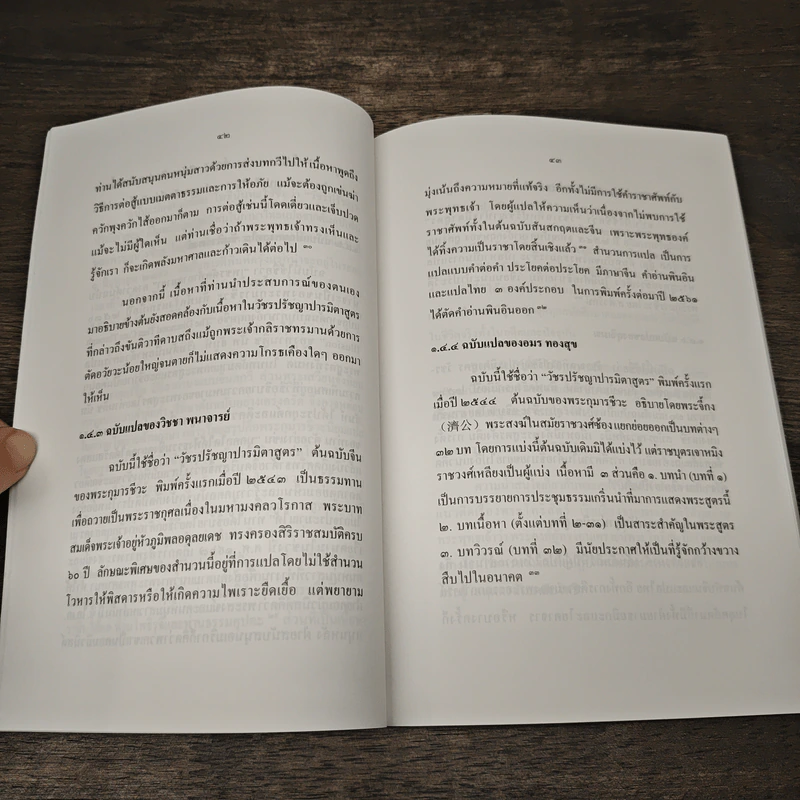 ๔๒
ท่านได้สนับสนุนคนหนุ่มสาวด้วยการส่งบทกวีไปให้ เนื้อหาพูดถึง
วิธีการต่อสู้แบบเมตตาธรรมและการให้อภัย แม้จะต้องถูกเข่นฆ่า
ควักพุงควักไส้ออกมาก็ตาม การต่อสู้เช่นนี้โดดเดี่ยวและเจ็บปวด
แม้จะไม่มีผู้ใดเห็น แต่ท่านเชื่อว่าถ้าพระพุทธเจ้าทรงเห็นและ
รู้จักเรา ก็จะเกิดพลังมหาศาลและก้าวเดินได้ต่อไป
นอกจากนี้ เนื้อหาที่ท่านนำประสบการณ์ของตนเอง
มาอธิบายข้างต้นยังสอดคล้องกับเนื้อหาในวัชรปรัชญาปารมิตาสูตร
ที่กล่าวถึงขันติวาทีดาบสถึงแม้ถูกพระเจ้ากลิราชทรมานด้วยการ
ตัดอวัยวะน้อยใหญ่จนตายก็ไม่แสดงความโกรธเคืองใดๆ ออกมา
ให้เห็น
๑.๔.๓ ฉบับแปลของวิชชา พนาจารย์
ฉบับนี้ใช้ชื่อว่า “วัชรปรัชญาปารมิตาสูตร” ต้นฉบับจีน
ของพระกุมารชีวะ พิมพ์ครั้งแรกเมื่อปี ๒๕๔๓ เป็นธรรมทาน
เพื่อถวายเป็นพระราชกุศลเนื่องในมหามงคลวโรกาส พระบาท
สมเด็จพระเจ้าอยู่หัวภูมิพลอดุลยเดช ทรงครองสิริราชสมบัติครบ
๖๐ ปี ลักษณะพิเศษของสำนวนนี้อยู่ที่การแปลโดยไม่ใช้สำนวน
โวหารให้พิสดารหรือให้เกิดความไพเราะยืดเยื้อ แต่พยายาม
๔๓
มุ่งเน้นถึงความหมายที่แท้จริง อีกทั้งไม่มีการใช้คำราชาศัพท์กับ
พระพุทธเจ้า โดยผู้แปลให้ความเห็นว่าเนื่องจากไม่พบการใช้
ราชาศัพท์ทั้งในต้นฉบับสันสกฤตและจีน เพราะพระพุทธองค์
ได้ทิ้งความเป็นราชาโดยสิ้นเชิงแล้ว สำนวนการแปล เป็นการ
แปลแบบคำต่อคำ ประโยคต่อประโยค มีภาษาจีน คำอ่านพินอิน
และแปลไทย ๓ องค์ประกอบ ในการพิมพ์ครั้งต่อมาปี ๒๕๖๑
ได้ตัดคำอ่านพินอินออก
๑.๔.๔ ฉบับแปลของอมร ทองสุข
ฉบับนี้ใช้ชื่อว่า “วัชรปรัชญาปารมิตาสูตร” พิมพ์ครั้งแรก
เมื่อปี ๒๕๔๔ ต้นฉบับของพระกุมารชีวะ อธิบายโดยพระจี้กง
(濟公) พระสงฆ์ในสมัยราชวงศ์ซ้องแยกย่อยออกเป็นบทต่างๆ
๓๒ บท โดยการแบ่งนี้ต้นฉบับเดิมมิได้แบ่งไว้ แต่ราชบุตรเจาหมิง
ราชวงศ์เหลียงเป็นผู้แบ่ง เนื้อหามี ๓ ส่วนคือ ๑. บทนำ (บทที่ ๑)
เป็นการบรรยายการประชุมธรรมเกริ่นนำที่มาการแสดงพระสูตรนี้
๒. บทเนื้อหา (ตั้งแต่บทที่ ๒-๓๑) เป็นสาระสำคัญในพระสูตร
๓. บทวิวรณ์ (บทที่ ๓๒) มีนัยประกาศให้เป็นที่รู้จักกว้างขวาง
สืบไปในอนาคต